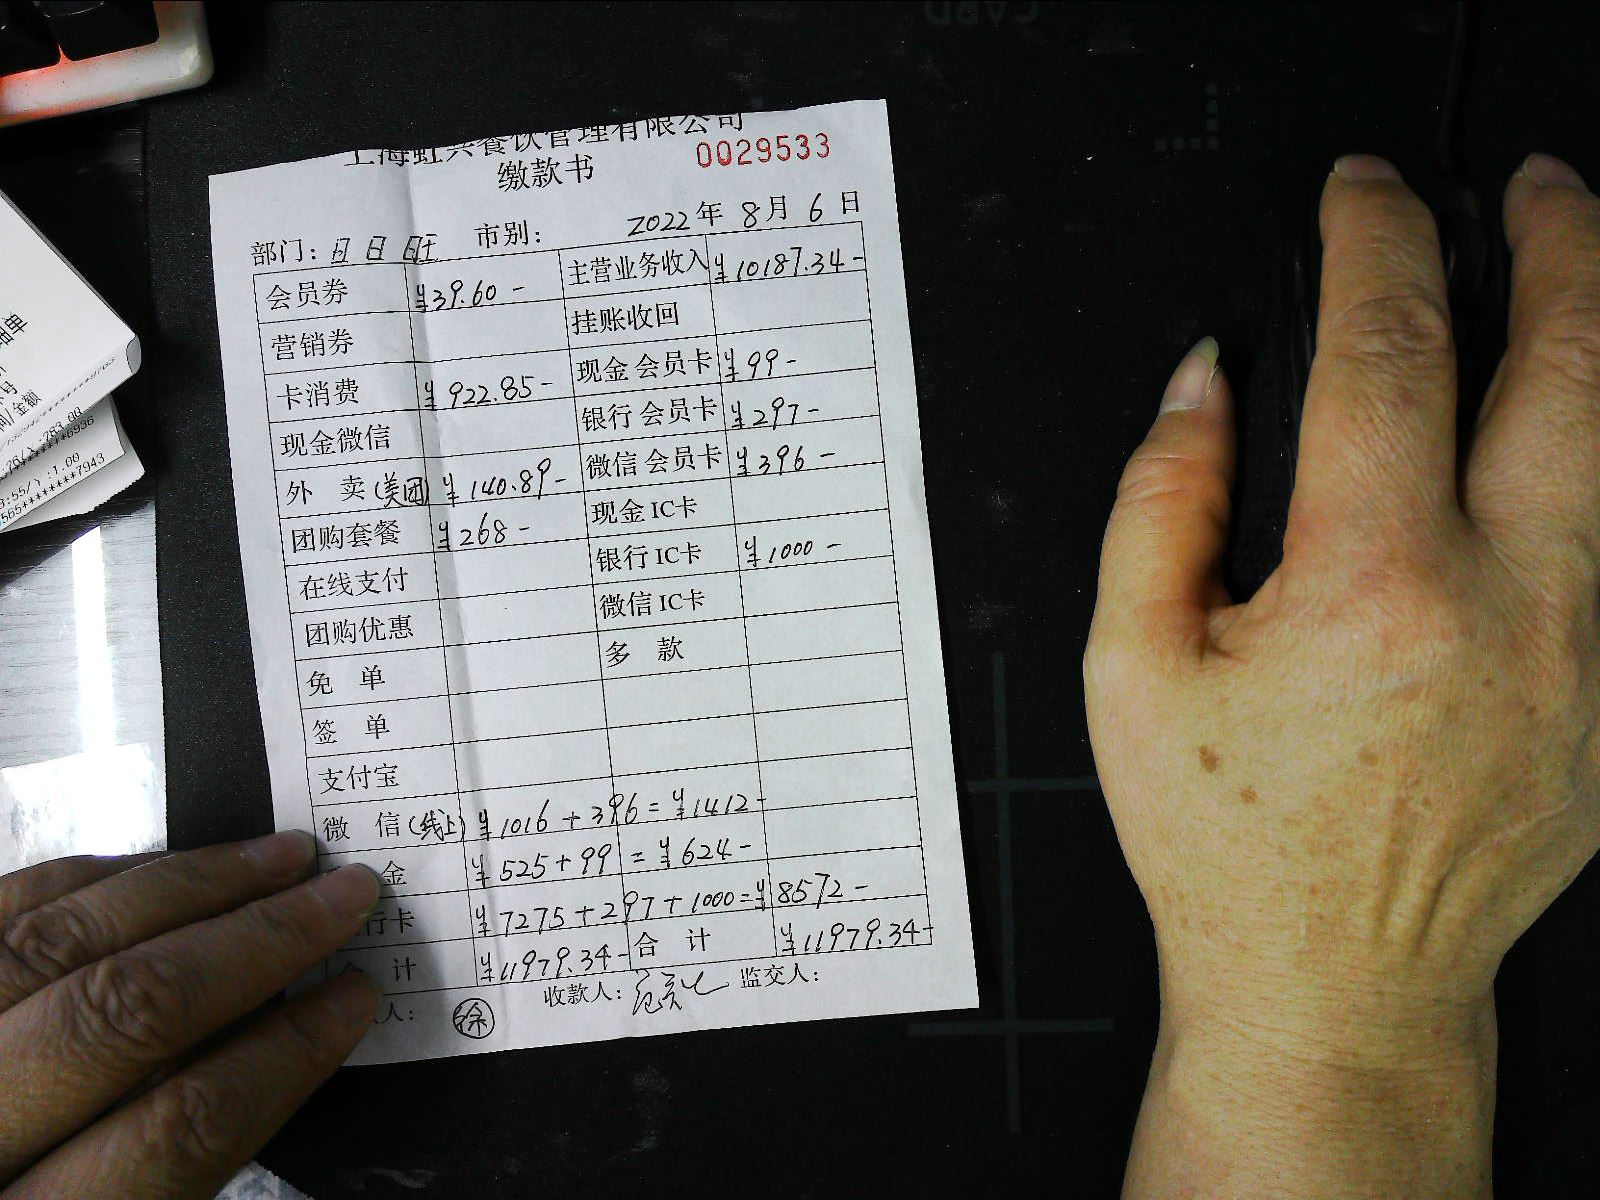 上海虹共餐饮管理有限公司
缴款书 0029533
部门: 日日旺 市别: 2022年 8月 6日
会员券 ¥39.60- 主营业务收入 ¥10187.34-
营销券 挂账收回
卡消费 ¥922.85- 现金会员卡 ¥99-
现金微信 银行会员卡 ¥297-
外 卖(美团) ¥140.89- 微信会员卡 ¥396-
团购套餐 ¥268- 现金IC卡
在线支付 银行IC卡 ¥1000-
团购优惠 微信IC卡
免 单 多 款
签 单
支付宝
微 信(线上) ¥1016+396=¥1412-
金 ¥525+99=¥624-
行卡 ¥7275+297+1000=¥8572-
合 计 ¥11979.34- 合 计 ¥11979.34-
人: 徐 收款人: 监交人: